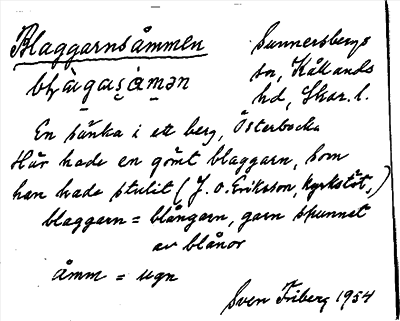 Blaggarnsåmmen
Sunnersbergs
sn, Kållands
hd, Skar. l.
En sänka i ett berg, Österbacka
Här hade en gömt blaggarn, som
han hade stulit (J. O. Eriksson, Kyrkstöt,)
blaggarn = blångarn, garn spunnet
av blånor
åmm = ugn
Sven Friberg 1934